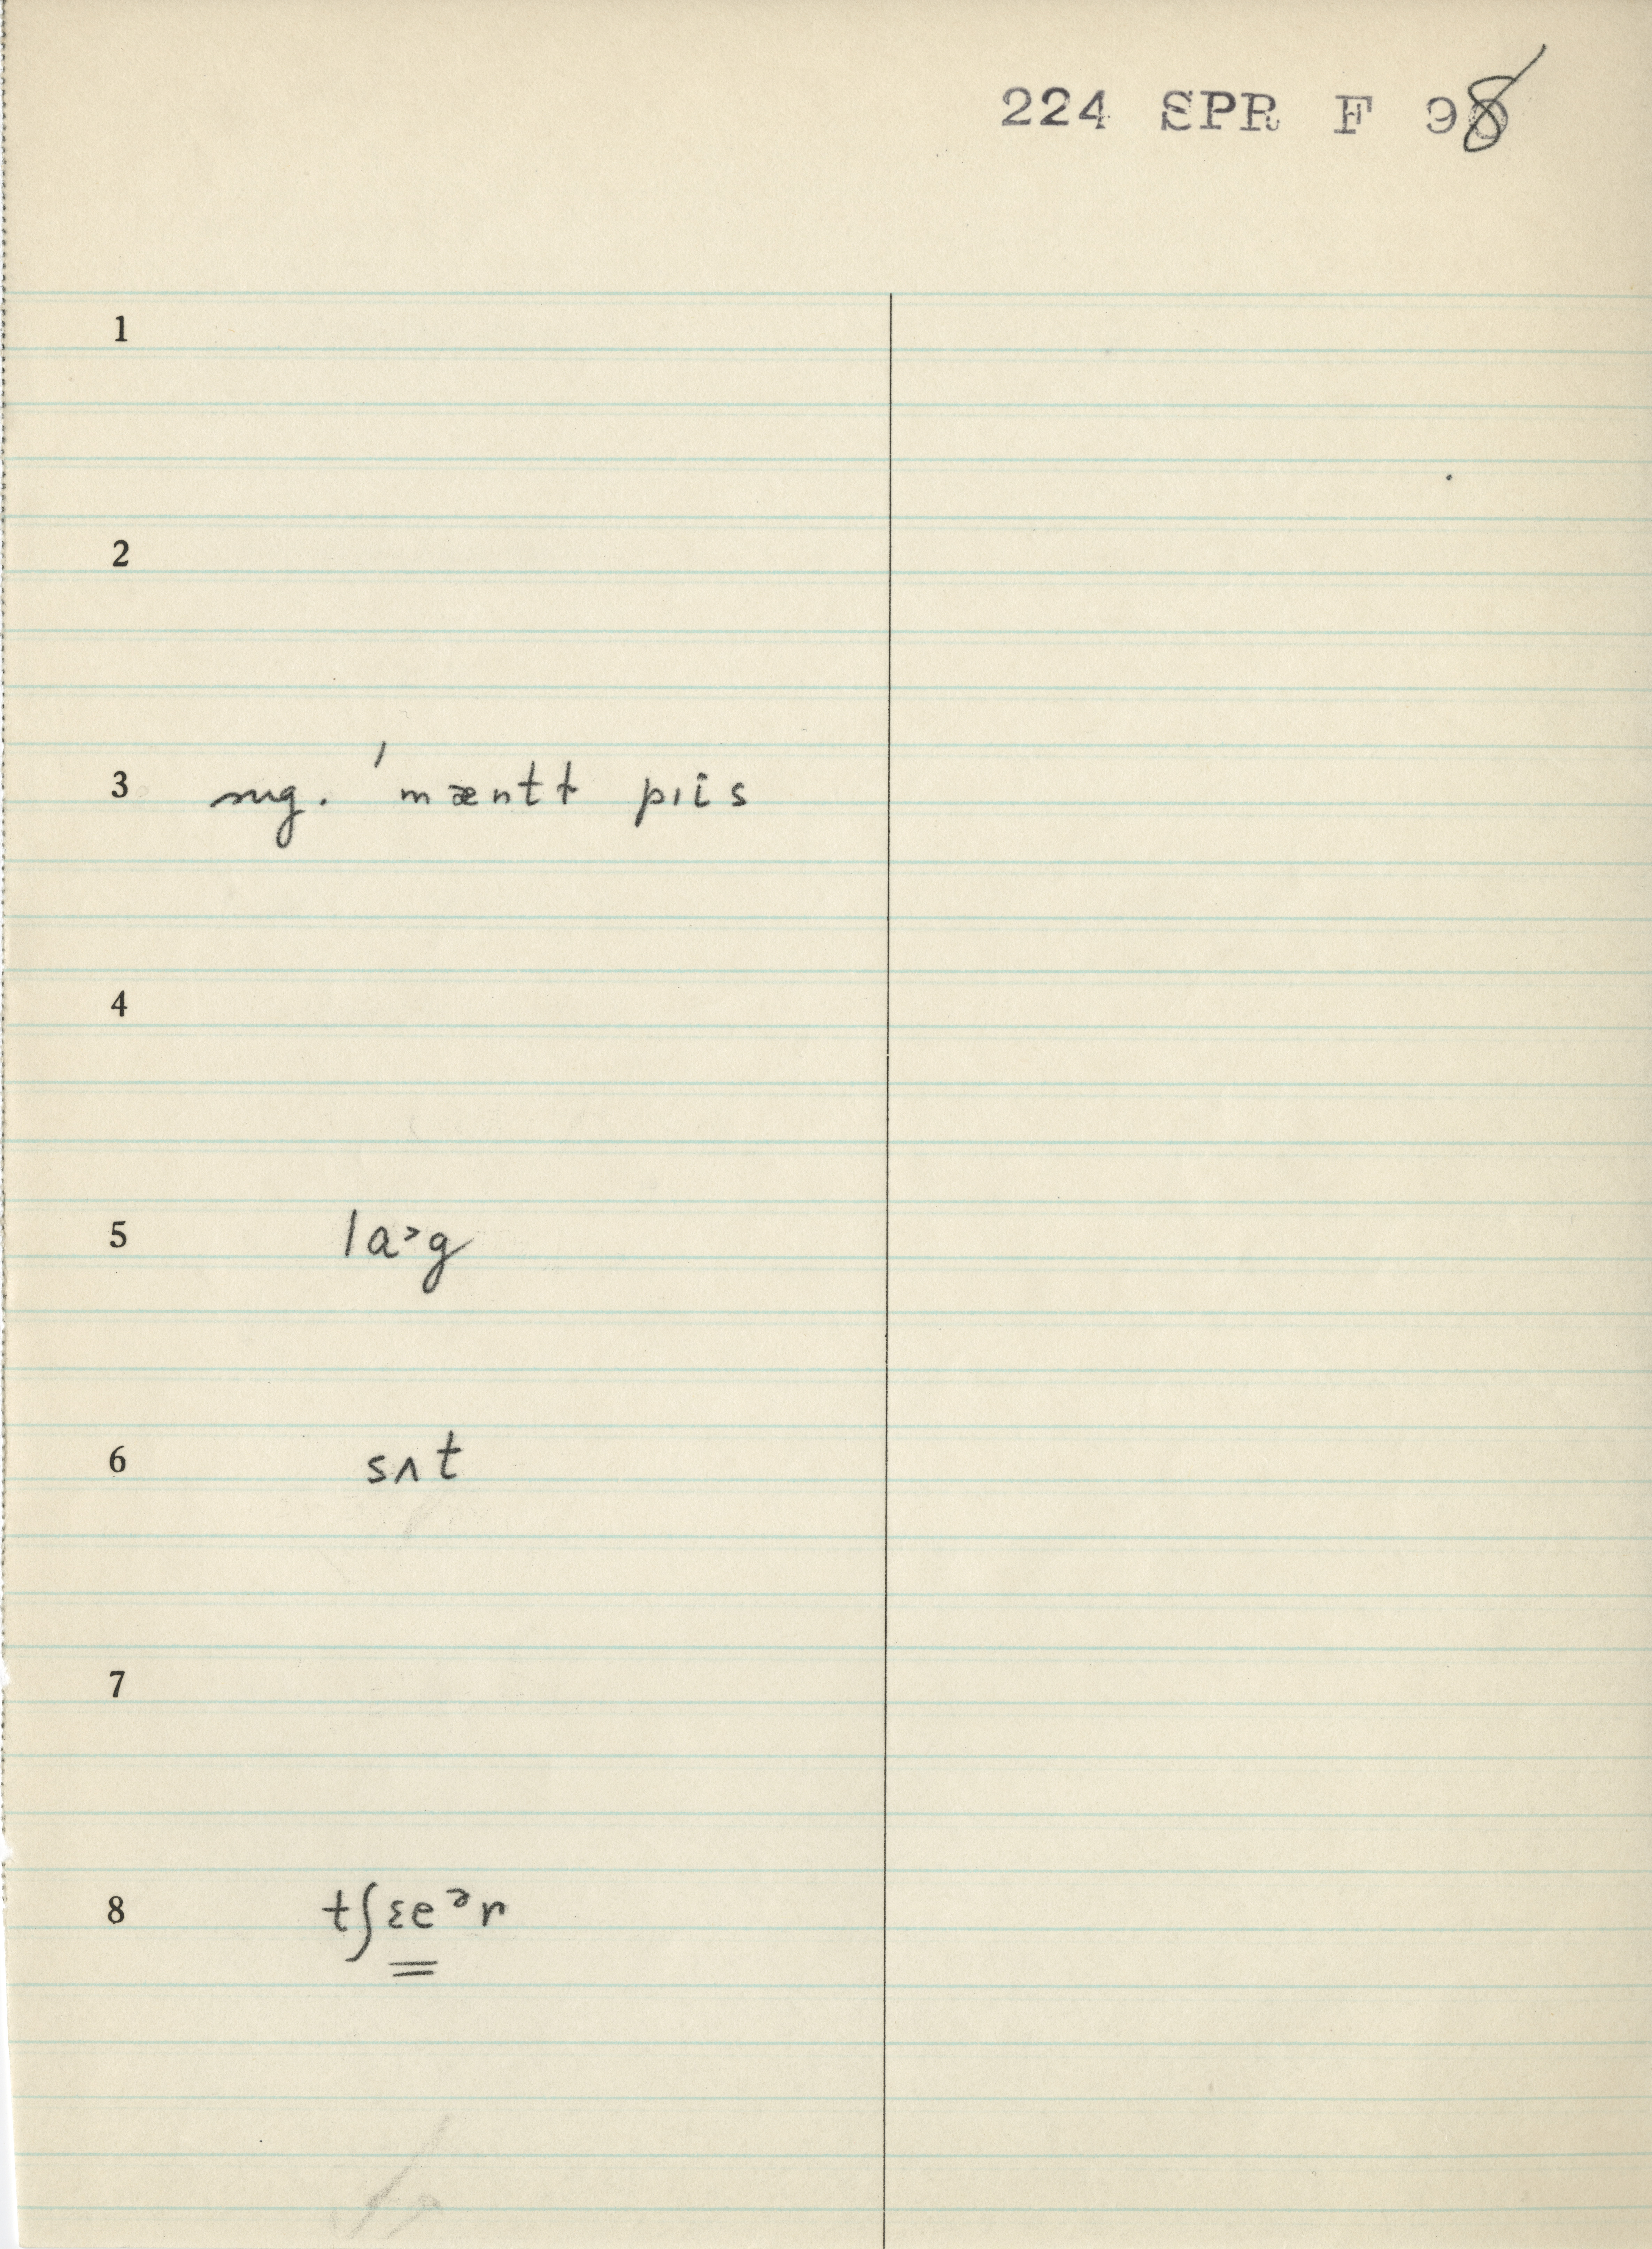 224 SPR F 98
1
2
3 sug. ˈmæntɫ pɪis
4
5 la˃g
6 sʌt
7
8 tʃɛeᵊr